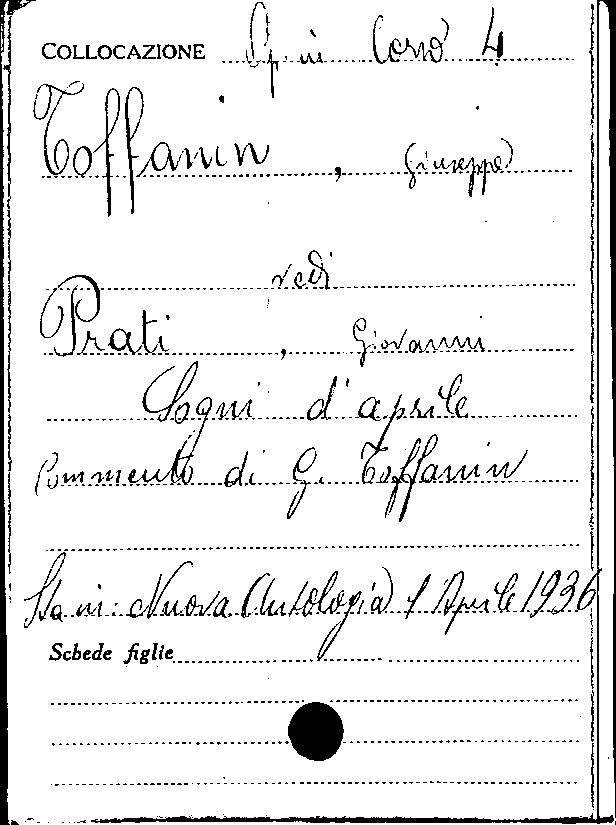 COLLOCAZIONE Op. in Corso 4
Toffanin, Giuseppe
vedi
Prati, Giovanni
Sogni d'aprile
Commento di G. Toffanin
Sta in: Nuova Antologia 1 Aprile 1936
Schede figlie